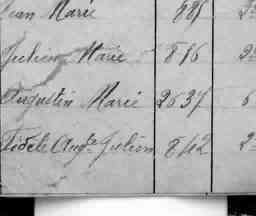 Jean Marie 885 2
Julien Marie 816 2
Augustin Marie 2637 6
Fidele Augte Julien 812 2